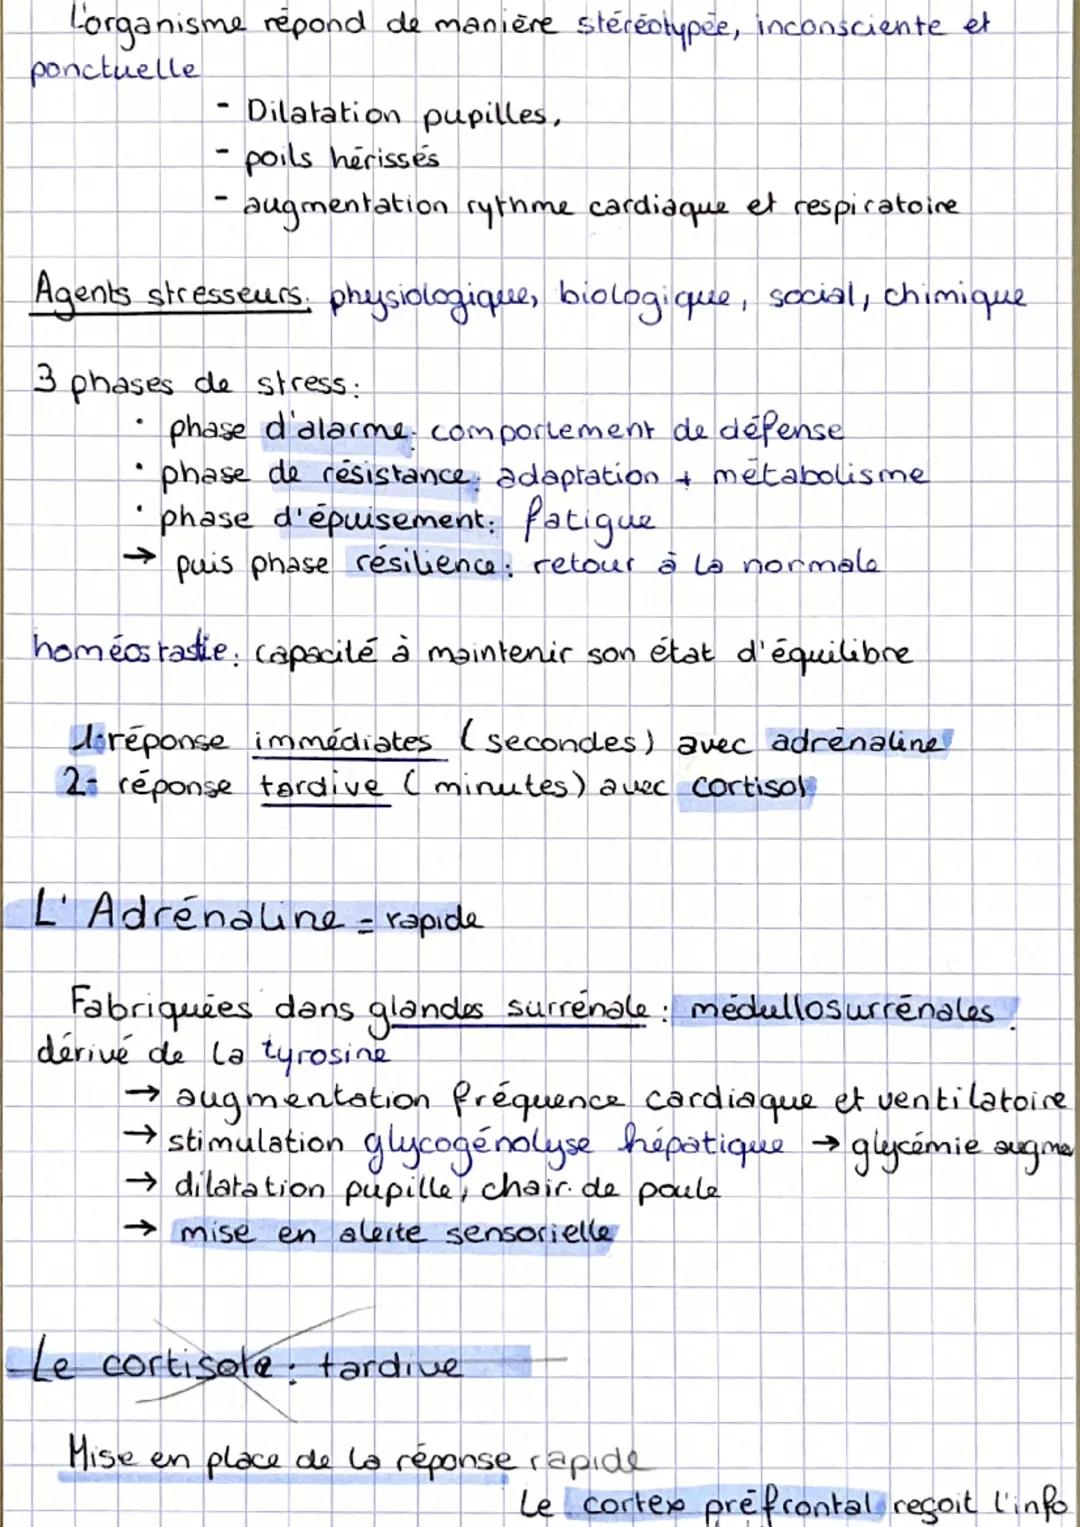 L'organisme répond de manière stéréotypée, inconsciente et
ponctuelle
- Dilatation pupilles,
- poils hérissés
- augmentation rythme cardiaque et respiratoire
Agents stresseurs: physiologique, biologique, social, chimique
3 phases de stress:
• phase d'alarme: comportement de défense
• phase de résistance: adaptation + métabolisme
• phase d'épuisement: fatigue
→ puis phase résilience: retour à la normale
homéostasie: capacité à maintenir son état d'équilibre
1- réponse immédiates (secondes) avec adrénaline
2- réponse tardive (minutes) avec cortisol
L'Adrénaline = rapide
Fabriquées dans glandes surrénale: médullosurrénales
dérivé de la tyrosine
→ augmentation fréquence cardiaque et ventilatoire
→ stimulation glycogénolyse hépatique → glycémie augme
→ dilatation pupille, chair de poule
→ mise en alerte sensorielle
Le cortisole: tardive
Mise en place de la réponse rapide
Le cortex préfrontal reçoit l'info